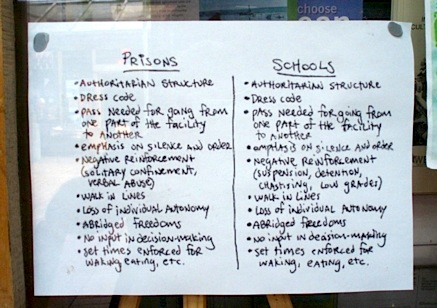 choose
can
PRISONS
• AUTHORITARIAN STRUCTURE
• DRESS CODE
• PASS NEEDED FOR GOING FROM
ONE PART OF THE FACILITY
TO ANOTHER
• EMPHASIS ON SILENCE AND ORDER
• NEGATIVE REINFORCEMENT
(SOLITARY CONFINEMENT,
VERBAL ABUSE)
• WALK IN LINES
• LOSS OF INDIVIDUAL AUTONOMY
• ABRIDGED FREEDOMS
• NO INPUT IN DECISION-MAKING
• SET TIMES ENFORCED FOR
WAKING, EATING, ETC.
SCHOOLS
• AUTHORITARIAN STRUCTURE
• DRESS CODE
• PASS NEEDED FOR GOING FROM
ONE PART OF THE FACILITY
TO ANOTHER
• EMPHASIS ON SILENCE AND ORDER
• NEGATIVE REINFORCEMENT
(SUSPENSION, DETENTION,
CHASTISING, LOW GRADES)
• WALK IN LINES
• LOSS OF INDIVIDUAL AUTONOMY
• ABRIDGED FREEDOMS
• NO INPUT IN DECISION-MAKING
• SET TIMES ENFORCED FOR
WAKING, EATING, ETC.